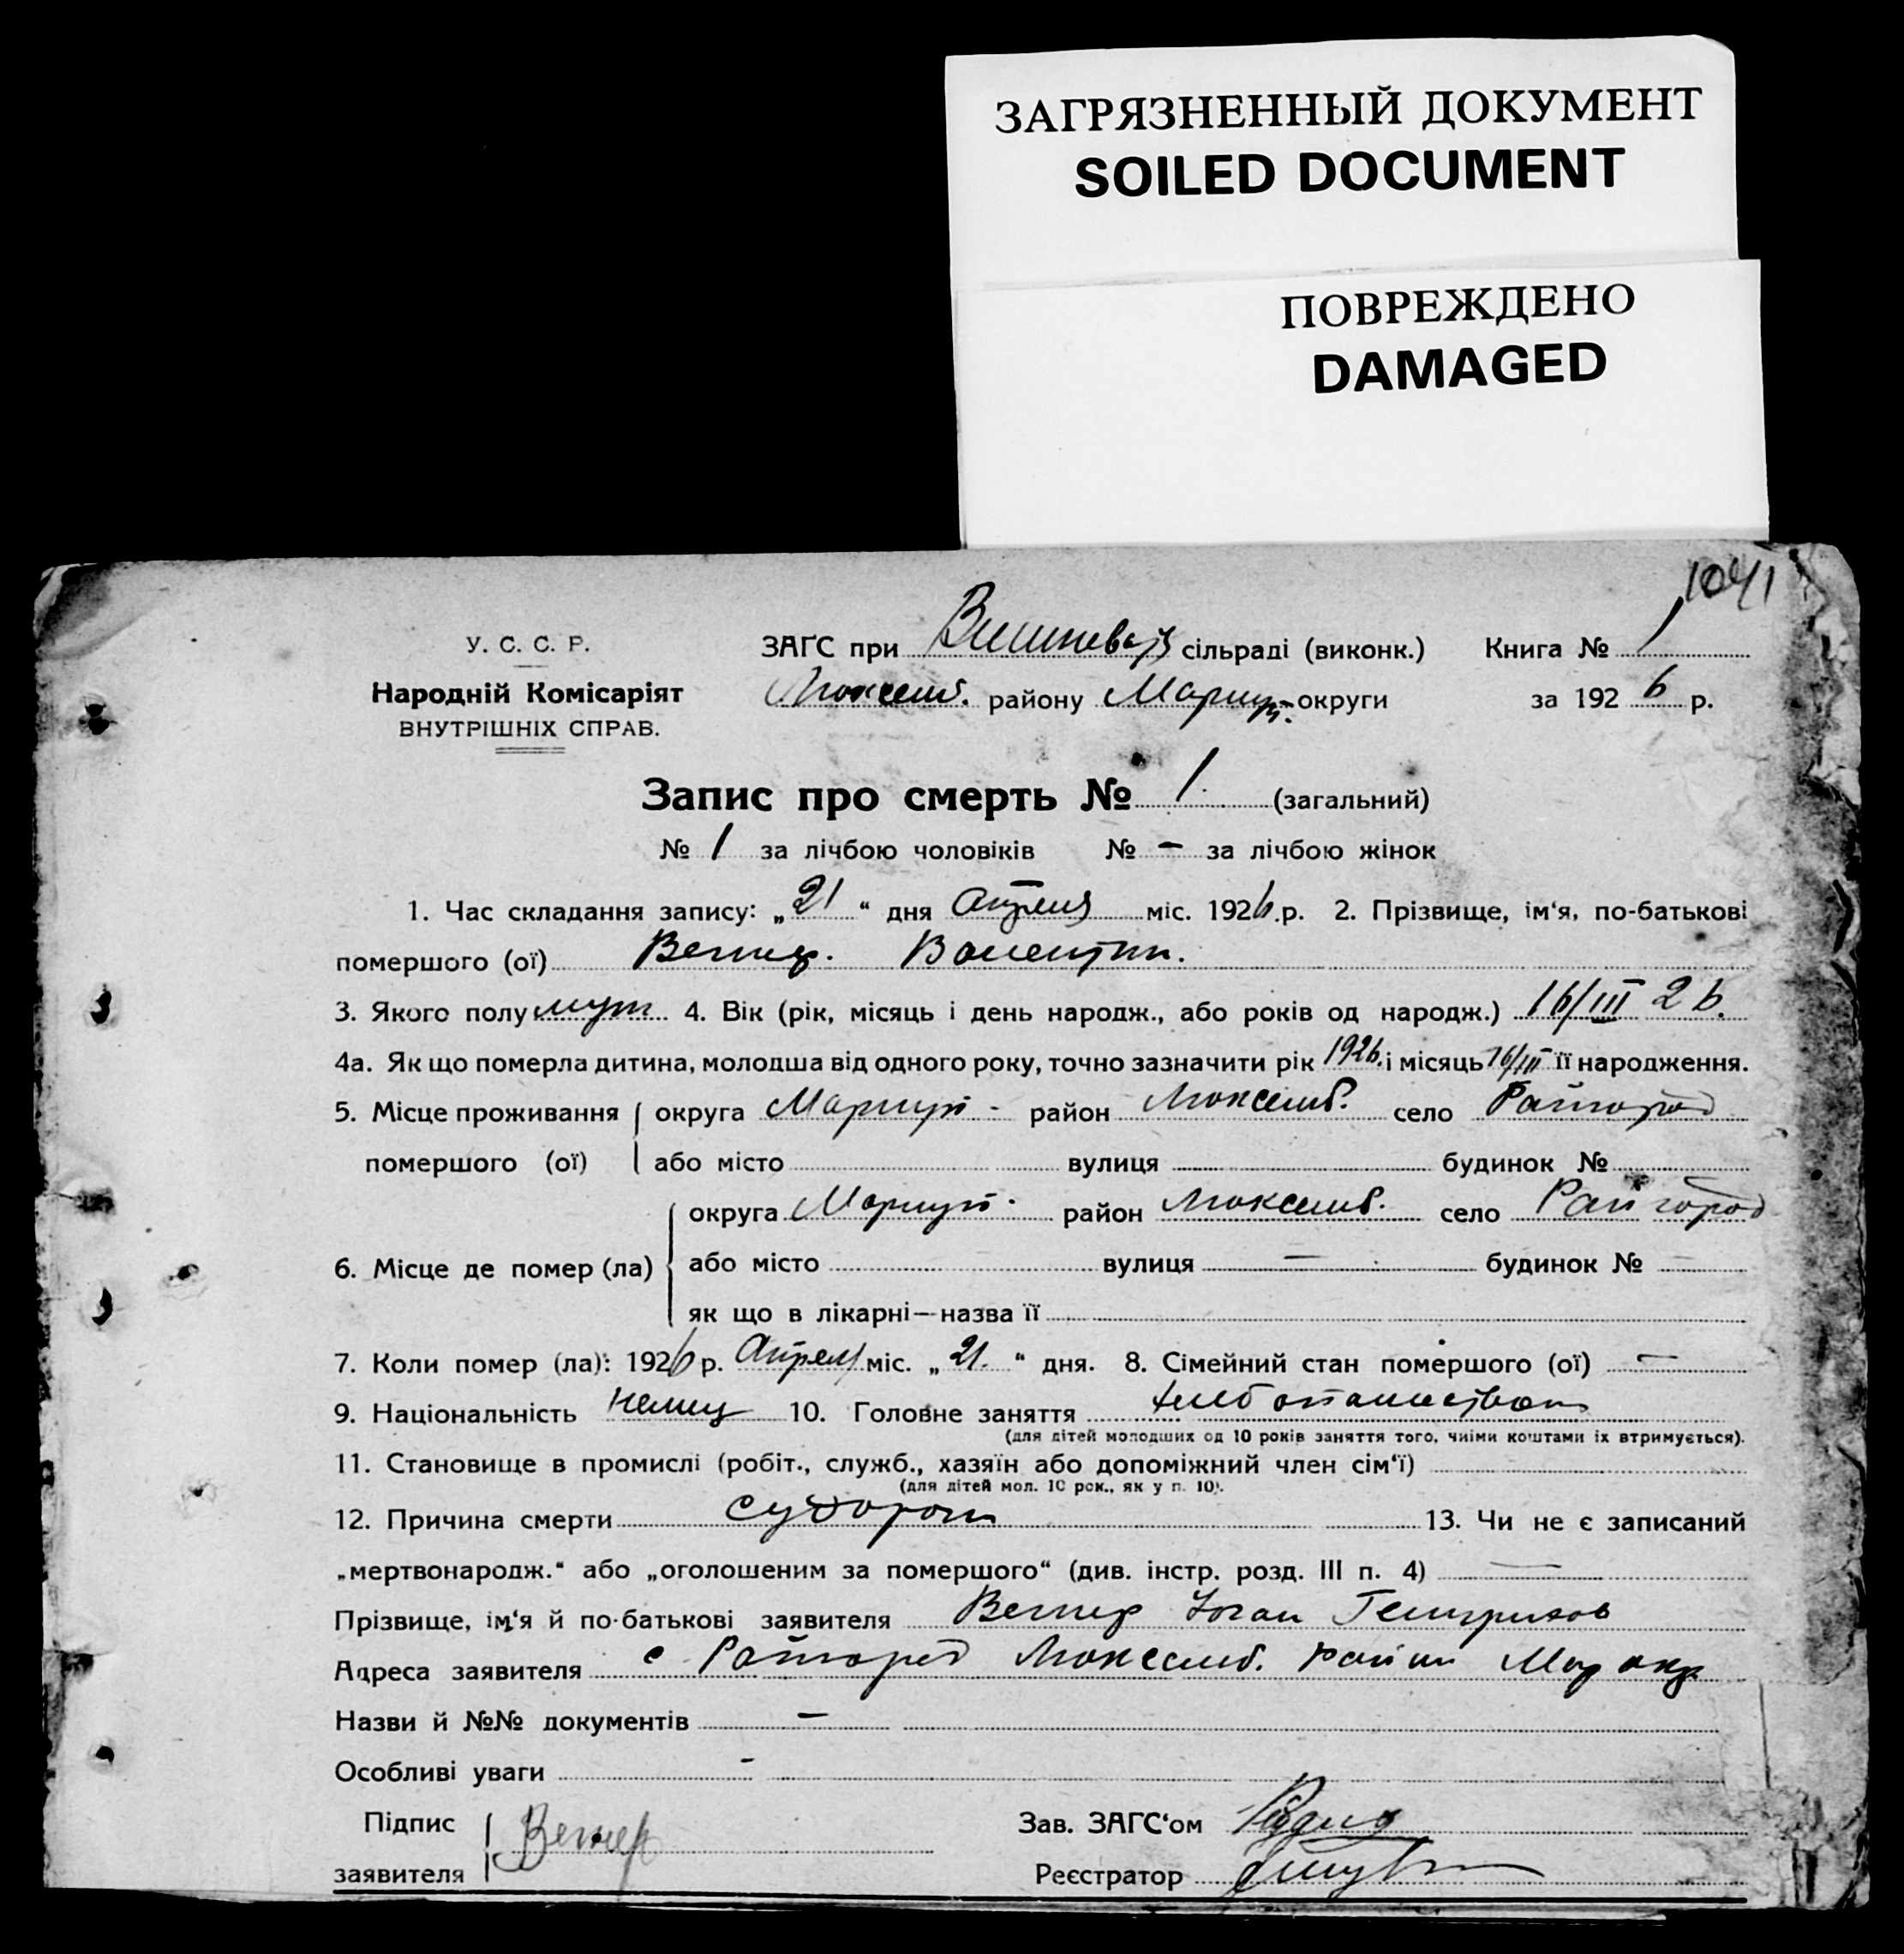 ЗАГРЯЗНЕННЫЙ ДОКУМЕНТ
SOILED DOCUMENT
ПОВРЕЖДЕНО
DAMAGED
1041
У. С. С. Р.
Народній Комісаріят
ВНУТРІШНІХ СПРАВ.
ЗАГС при сільраді (виконк.) Книга № 1
Люксемб. району Мариуп. округи за 1926 р.
Запис про смерть № 1. (загальний)
№ 1 за лічбою чоловіків № – за лічбою жінок
1. Час складання запису: „21“ дня Апреля міс. 1926 р. 2. Прізвище, ім‘я, по-батькові
помершого (ої) Вегнер. Валентин.
3. Якого полу муж 4. Вік (рік, місяць і день народж., або років од народж.) 16/III 26.
4а. Як що померла дитина, молодша від одного року, точно зазначити рік 1926. і місяць 16/III її народження.
5. Місце проживання помершого (ої) округа Мариуп. район Люксемб. село Райгород
або місто вулиця будинок №
6. Місце де помер (ла) округа Мариуп. район Люксемб. село Райгород
або місто вулиця — будинок № —
як що в лікарні—назва її
7. Коли помер (ла): 1926 р. Апреля міс. „21.“ дня. 8. Сімейний стан помершого (ої) —
9. Національність немец 10. Головне заняття хлебопашество
(для дітей молодших од 10 років заняття того, чиїми коштами їх втримується).
11. Становище в промислі (робіт., служб., хазяїн або допоміжний член сім‘ї)
(для дітей мол. 10 рок., як у п. 10).
12. Причина смерти судороги 13. Чи не є записаний
„мертвонародж.“ або „оголошеним за помершого“ (див. інстр. розд. III п. 4) —
Прізвище, ім‘я й по-батькові заявителя Вегнер Иоган Генрихов
Адреса заявителя с Райгород Люксемб. район Мар окр
Назви й №№ документів —
Особливі уваги -
Підпис заявителя Вегнер
Зав. ЗАГС‘ом
Реєстратор